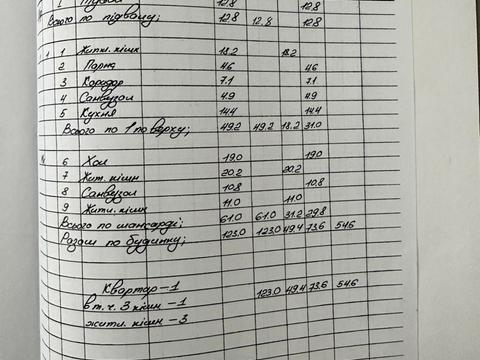 12.8 12.8
Всього по підвалу; 12.8 12.8 12.8
1 1 Житл. кімн 18.2 18.2
2 Парна 4.6 4.6
3 Коридор 7.1 7.1
4 Санвузол 4.9 4.9
5 Кухня 14.4 14.4
Всього по 1 поверху; 49.2 49.2 18.2 31.0
6 Хол 19.0 19.0
7 Жит. кімн 20.2 20.2
8 Санвузол 10.8 10.8
9 Житл. кімн 11.0 11.0
Всього по мансарді; 61.0 61.0 31.2 29.8
Разом по будинку; 123.0 123.0 49.4 73.6 54.6
Квартир - 1 123.0 49.4 73.6 54.6
в т. ч. 3 кімн - 1
житл. кімн - 3